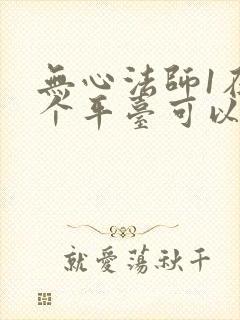 無心法師1在
个平臺可以
就愛蕩秋千